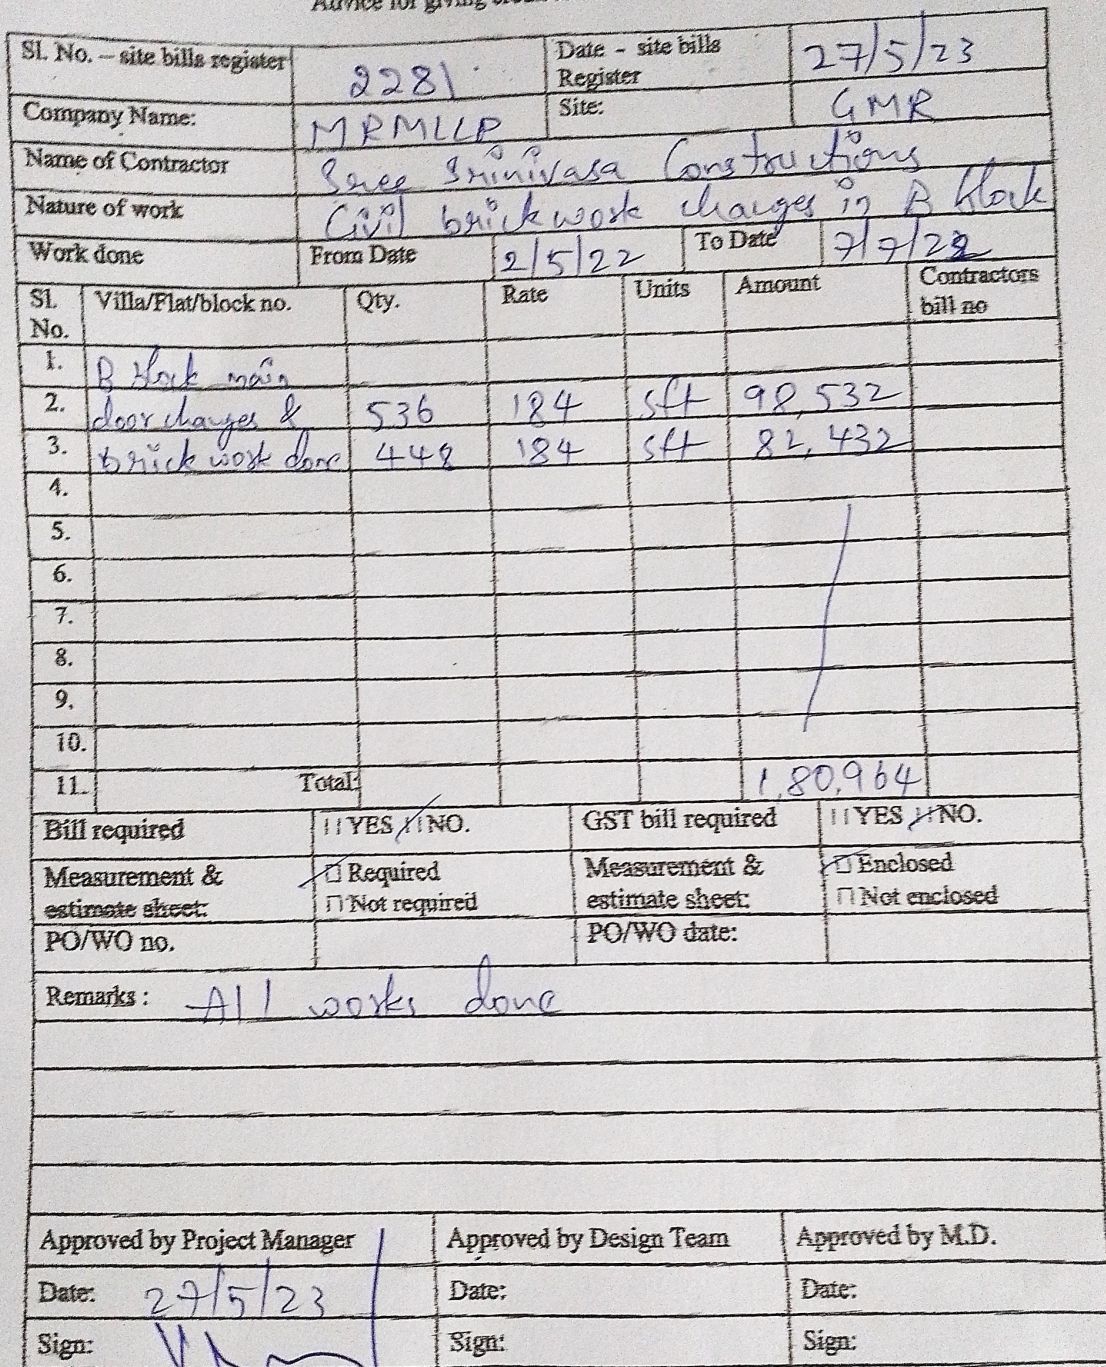 Advice for giving
Sl. No. – site bills register 2281 Date - site bills Register 27/5/23
Company Name: MRMLLP Site: GMR
Name of Contractor Sree Srinivasa Constructions
Nature of work Civil brickwork changes in B block
Work done From Date 2/5/22 To Date 7/7/22
Sl. No. Villa/Flat/block no. Qty. Rate Units Amount Contractors bill no
1. B block main
2. door changes & 536 184 sft 98,532
3. brick work done 448 184 sft 82,432
4.
5.
6.
7.
8.
9.
10.
11. Total: 1,80,964
Bill required YES NO. GST bill required YES NO.
Measurement & estimate sheet: Required Measurement & estimate sheet: Enclosed
Not required Not enclosed
PO/WO no. PO/WO date:
Remarks : All works done
Approved by Project Manager Approved by Design Team Approved by M.D.
Date: 27/5/23 Date: Date:
Sign: Sign: Sign: